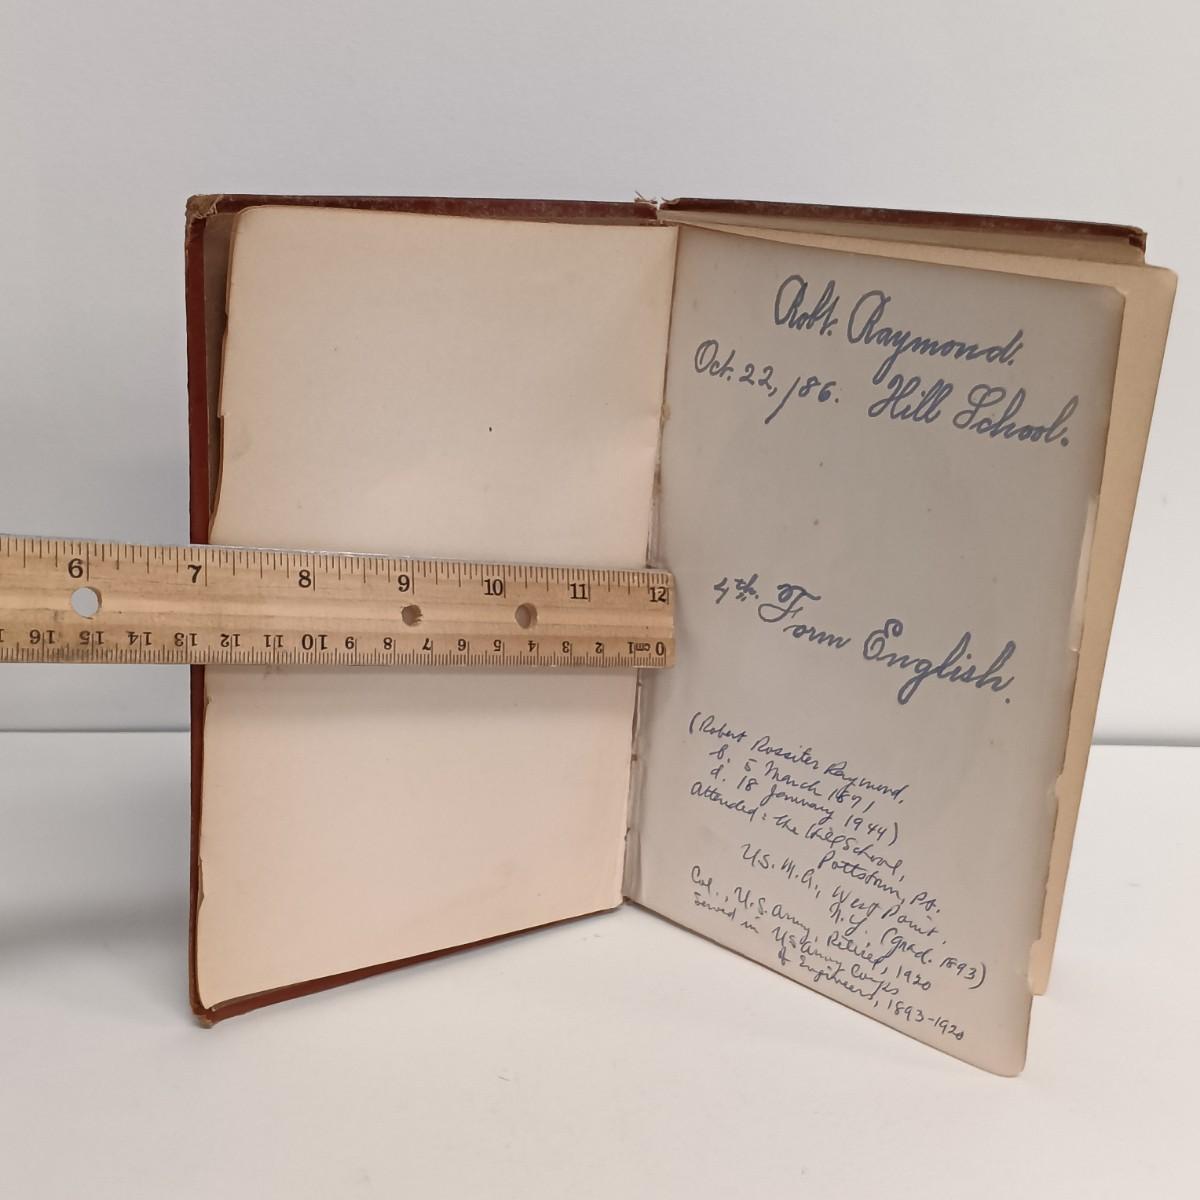 Robt. Raymond.
Oct. 22, /86. Hill School.
4th. Form English.
(Robert Rossiter Raymond,
b. 5 March 1871,
d. 18 January 1944)
Attended: the Hill School,
Pottstown, Pa.
U.S.M.A., West Point,
N.Y. (grad. 1893)
Col., U.S. Army, Retired, 1920
Served in US Army Corps
of Engineers, 1893-1920
6 7 8 9 10 11 12
16 15 14 13 12 11 10 9 8 7 6 5 4 3 2 1cm 0